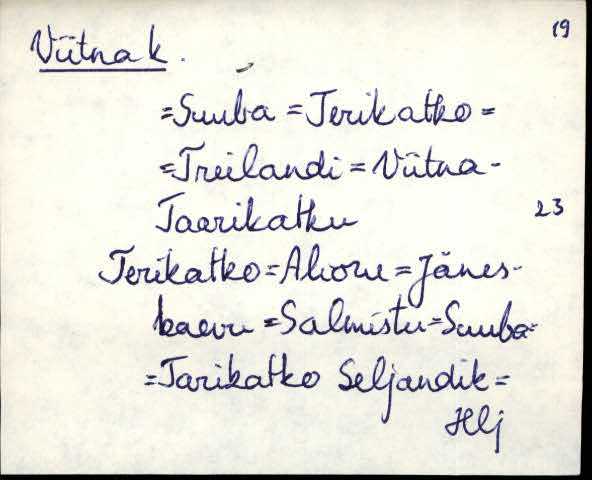 19
Viitna k.
=Suuba=Terikatko=
=Treilandi=Viitna-
Taarikatku 23
Terikatko=Alvoru=Jänes-
kaevu=Salmistu=Suuba=
=Tarikatko Seljandik=
Hlj